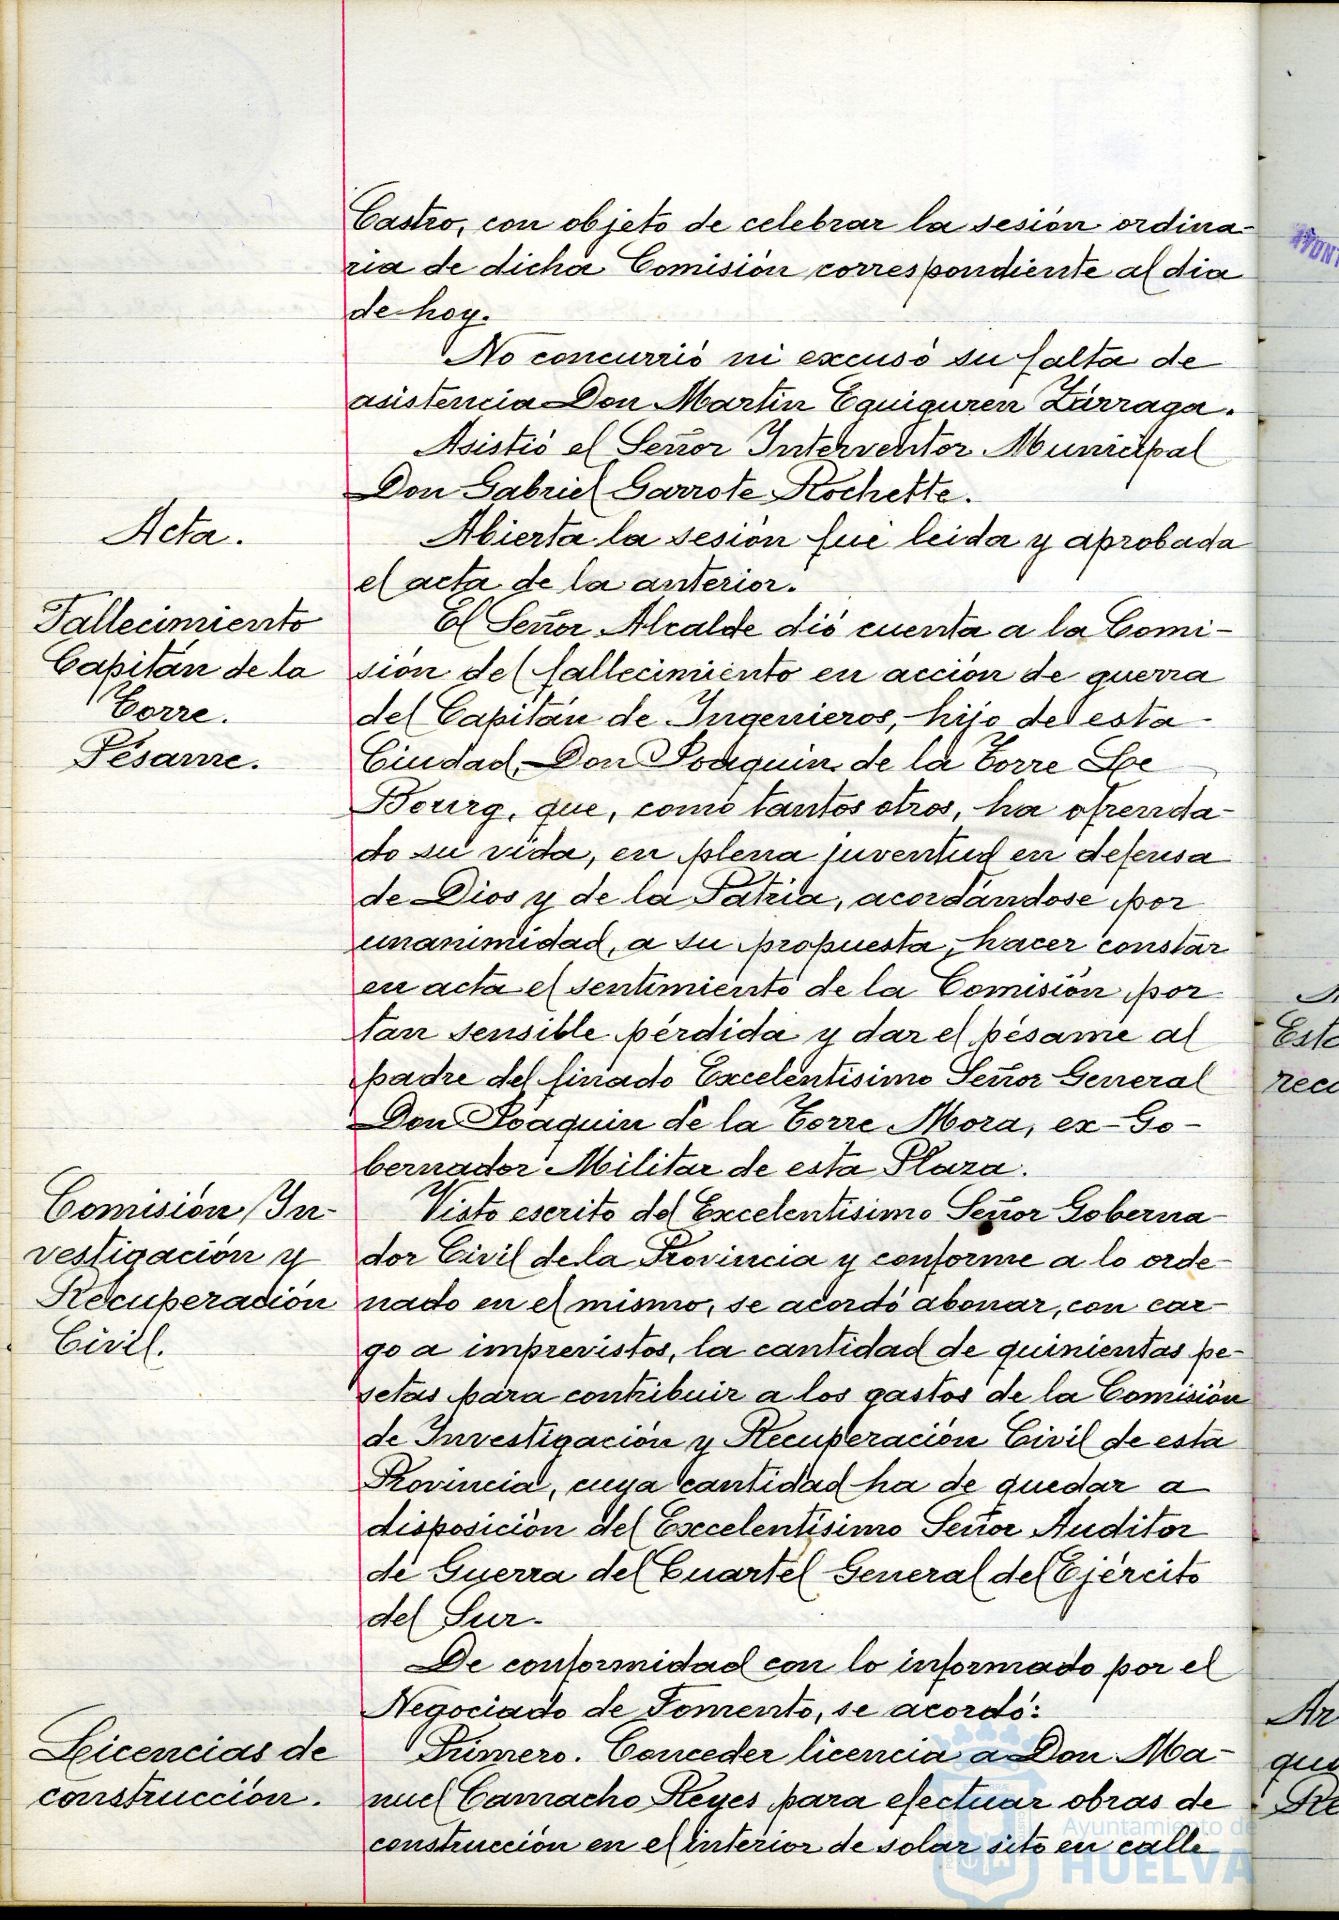 Castro, con objeto de celebrar la sesión ordina-
ria de dicha Comisión correspondiente al dia
de hoy.
No concurrió ni excusó su falta de
asistencia Don Martin Eguiguren Zárraga.
Asistió el Señor Interventor Municipal
Don Gabriel Garrote Rochette.
Acta.
Abierta la sesión fue leida y aprobada
el acta de la anterior.
Fallecimiento
Capitán de la
Torre.
Pésame.
El Señor Alcalde dió cuenta a la Comi-
sión del fallecimiento en acción de guerra
del Capitán de Ingenieros, hijo de esta
Ciudad, Don Joaquin de la Torre Le
Bourg, que, como tantos otros, ha ofrenda-
do su vida, en plena juventud en defensa
de Dios y de la Patria, acordándose por
unanimidad, a su propuesta, hacer constar
en acta el sentimiento de la Comisión por
tan sensible pérdida y dar el pésame al
padre del finado Excelentísimo Señor General
Don Joaquin de la Torre Mora, ex-Go-
bernador Militar de esta Plaza.
Comisión In-
vestigación y
Recuperación
Civil.
Visto escrito del Excelentísimo Señor Goberna-
dor Civil de la Provincia y conforme a lo orde-
nado en el mismo, se acordó abonar, con car-
go a imprevistos, la cantidad de quinientas pe-
setas para contribuir a los gastos de la Comisión
de Investigación y Recuperación Civil de esta
Provincia, cuya cantidad ha de quedar a
disposición del Excelentísimo Señor Auditor
de Guerra del Cuartel General del Ejército
del Sur.
De conformidad con lo informado por el
Negociado de Fomento, se acordó:
Licencias de
construcción.
Primero. Conceder licencia a Don Ma-
nuel Camacho Reyes para efectuar obras de
construcción en el interior de solar sito en calle
Ayuntamiento de
HUELVA